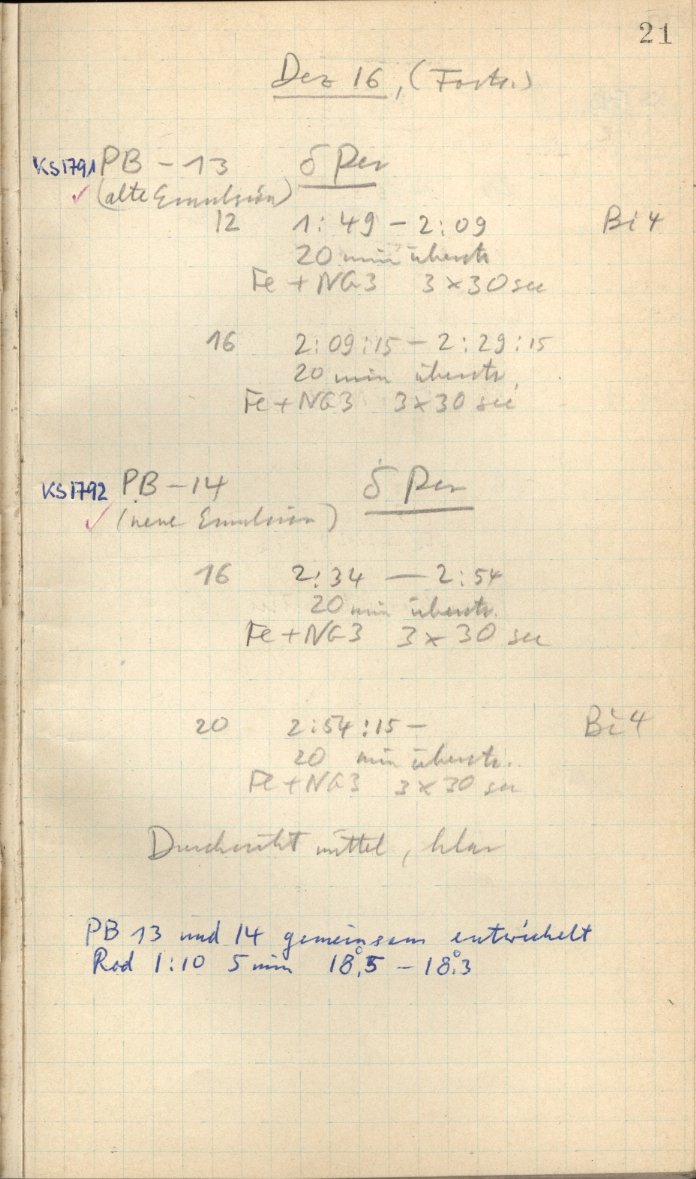 21
Dez 16, (Forts.)
KS1791 PB - 13 δ Per
(alte Emulsion)
12 1:49 - 2:09 Bi 4
20 min überstr.
Fe + NG3 3 x 30 sec
16 2:09:15 - 2:29:15
20 min überstr.
Fe + NG3 3 x 30 sec
KS1792 PB - 14 δ Per
(neue Emulsion)
16 2:34 — 2:54
20 min überstr.
Fe + NG3 3 x 30 sec
20 2:54:15 - Bi 4
20 min überstr.
Fe + NG3 3 x 30 sec
Durchsicht mittel, klar
PB 13 und 14 gemeinsam entwickelt
Rod 1:10 5 min 18°,5 - 18°,3